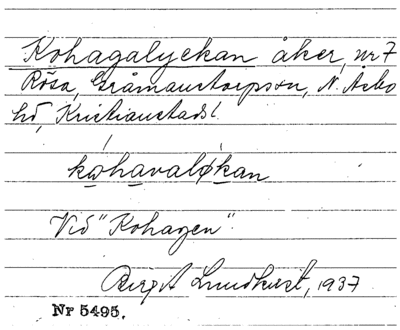 Kohagalyckan åker, nr 7
Rösa, Gråmanstorpssn, N. Åsbo
hd, Kristianstads l.
kohavaløkan
Vid "Kohagen".
Birgit Lundkvist, 1937
Nr 5495.